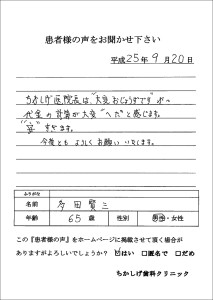 患者様の声をお聞かせ下さい
平成25年9月20日
ちかしげ医院長は"大変おじょうずです"が
代金の計算が大変"へた"と感じます。
"安"すぎます。
今後とも よろしくお願いいたします。
ふりがな
名前 多田賢三
年齢 65歳 性別 男性・女性
この『患者様の声』をホームページに掲載させて頂く場合が
ありますがよろしいでしょうか？ □はい □匿名で □だめ
ちかしげ歯科クリニック